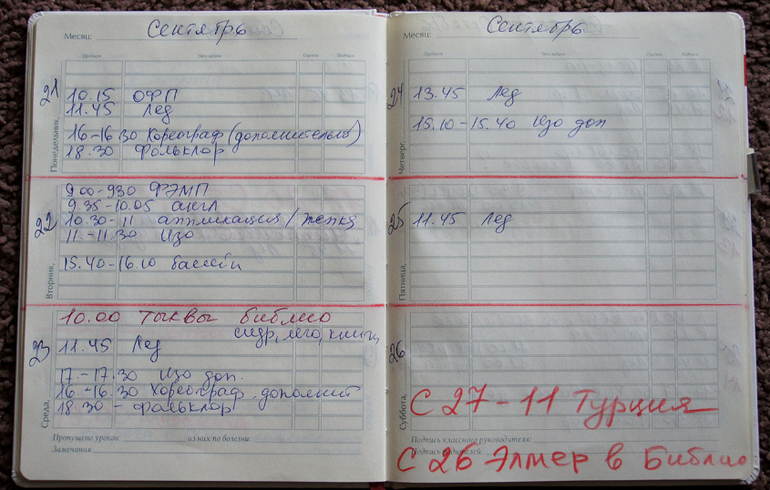 Месяц: Сентябрь
21
Понедельник,
10.15 ОФП
11.45 Лед
16-16.30 Хореограф (дополнительно)
18.30 Фольклор
22
Вторник,
9.00-9.30 ФЭМП
9.35-10.05 англ
10.30-11 аппликация/лепка
11.-11.30 Изо
15.40-16.10 бассейн
23
Среда,
10.00 Тыквы библио
сидр, лего, книги
11.45 Лед
17.-17.30 Изо доп.
16.-16.30 Хореограф. дополнит
18.30 - фольклор
Пропущено уроков: из них по болезни
Замечания
Месяц: Сентябрь
24
Четверг,
13.45 Лед
15.10-15.40 Изо доп
25
Пятница,
11.45 Лед
26
Суббота,
С 27-11 Турция
Подпись классного руководителя:
С 26 Элмер в Библио